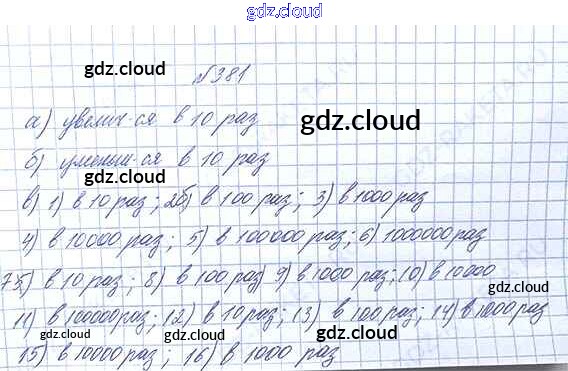 gdz.cloud
gdz.cloud
№381
gdz.cloud
а) увелич-ся в 10 раз
б) уменьш-ся в 10 раз
gdz.cloud
gdz.cloud
в) 1) в 10 раз; 2б) в 100 раз; 3) в 1000 раз
4) в 10000 раз; 5) в 100000 раз; 6) 1000000 раз
7б) в 10 раз; 8) в 100 раз 9) в 1000 раз; 10) в 10000
gdz.cloud
gdz.cloud
11) в 100000 раз; 12) в 10 раз; 13) в 100 раз; 14) в 1000 раз
gdz.cloud
gdz.cloud
15) в 10000 раз; 16) в 1000 раз